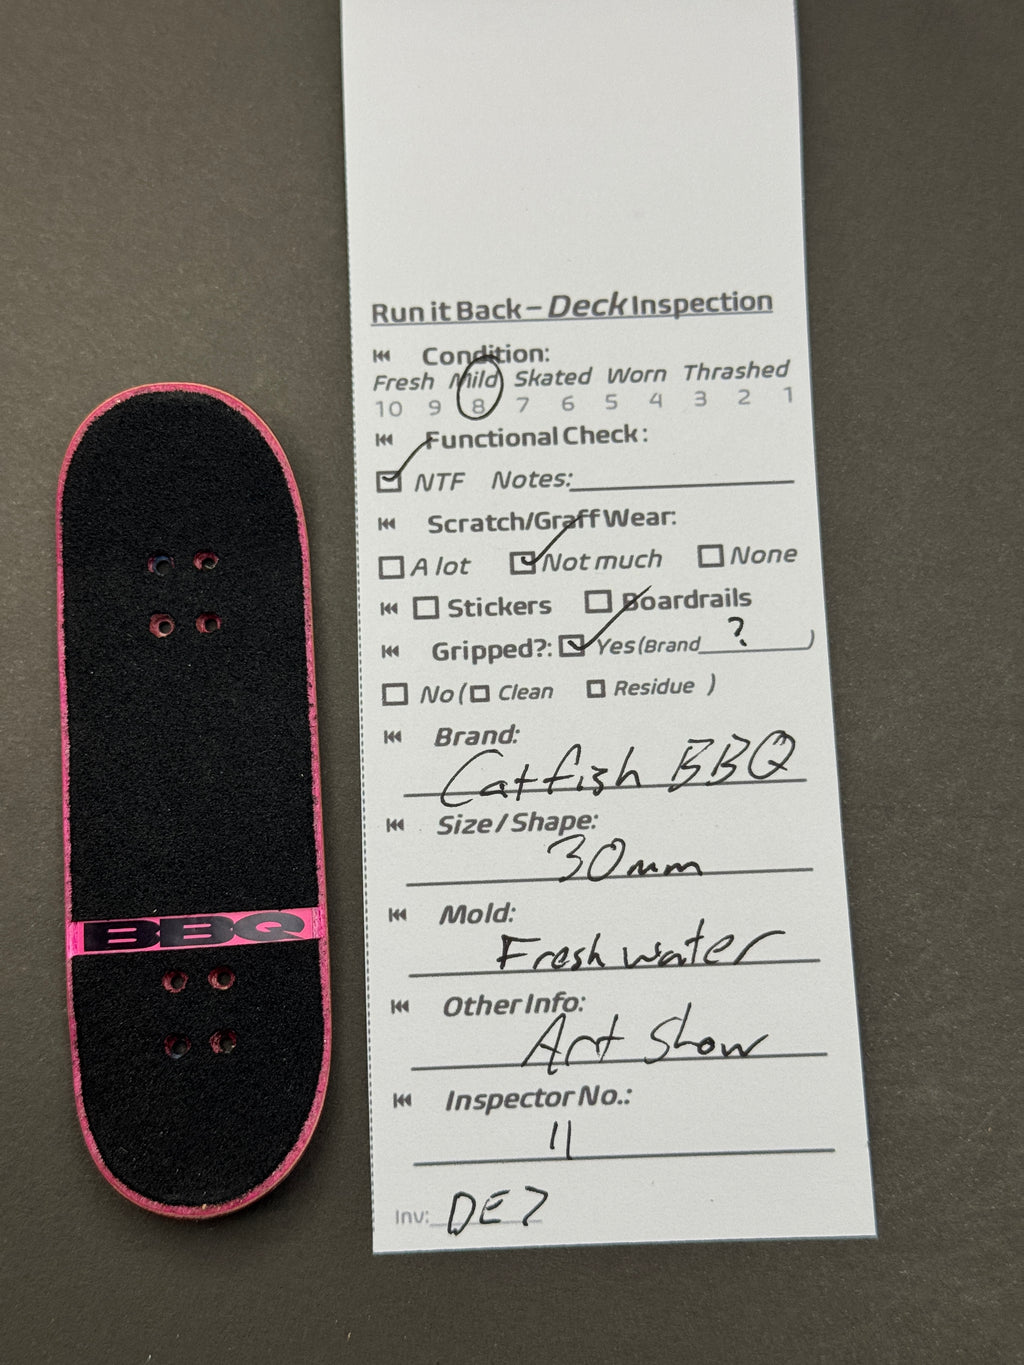 Run it Back – Deck Inspection
Condition:
Fresh Mild Skated Worn Thrashed
10 9 8 7 6 5 4 3 2 1
Functional Check:
NTF Notes:
Scratch/Graff Wear:
A lot Not much None
Stickers Boardrails
Gripped?: Yes (Brand ? )
No ( Clean Residue )
Brand:
Catfish BBQ
Size / Shape:
30mm
Mold:
Freshwater
Other Info:
Art Show
Inspector No.:
11
Inv: DE7
BBQ